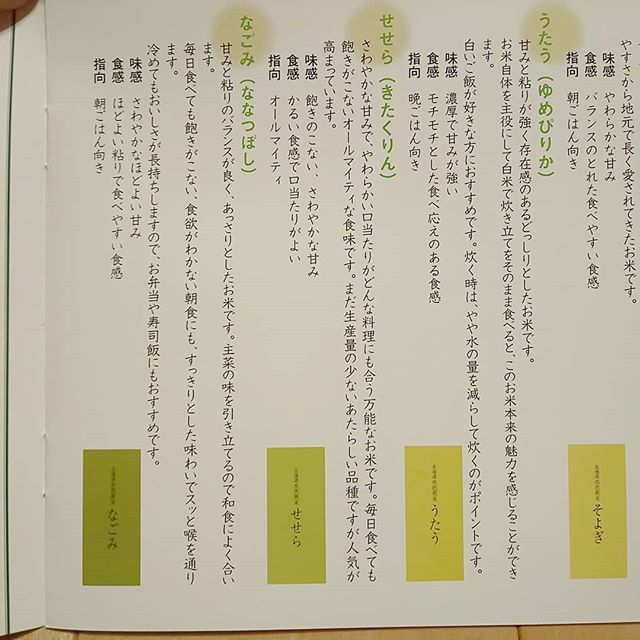 やすさから地元で長く愛されてきたお米です。
味感　やわらかな甘み
食感　バランスのとれた食べやすい食感
指向　朝ごはん向き
北海道水牧柾米　そよぎ
うたう（ゆめぴりか）
甘みと粘りが強く存在感のあるどっしりとしたお米です。
お米自体を主役にして白米で炊き立てをそのまま食べると、このお米本来の魅力を感じることができ
ます。
白いご飯が好きな方におすすめです。炊く時は、やや水の量を減らして炊くのがポイントです。
味感　濃厚で甘みが強い
食感　モチモチとした食べ応えのある食感
指向　晩ごはん向き
うたう
せせら（きたくりん）
さわやかな甘みで、やわらかい口当たりがどんな料理にも合う万能なお米です。毎日食べても
飽きがこないオールマイティな食味です。まだ生産量の少ないあたらしい品種ですが人気が
高まっています。
味感　飽きのこない、さわやかな甘み
食感　かるい食感で口当たりがよい
指向　オールマイティ
せせら
なごみ（ななつぼし）
甘みと粘りのバランスが良く、あっさりとしたお米です。主菜の味を引き立てるので和食によく合い
ます。
毎日食べても飽きがこない、食欲がわかない朝食にも、すっきりとした味わいでスッと喉を通り
ます。
冷めてもおいしさが長持ちしますので、お弁当や寿司飯にもおすすめです。
味感　さわやかなほどよい甘み
食感　ほどよい粘りで食べやすい食感
指向　朝ごはん向き
なごみ